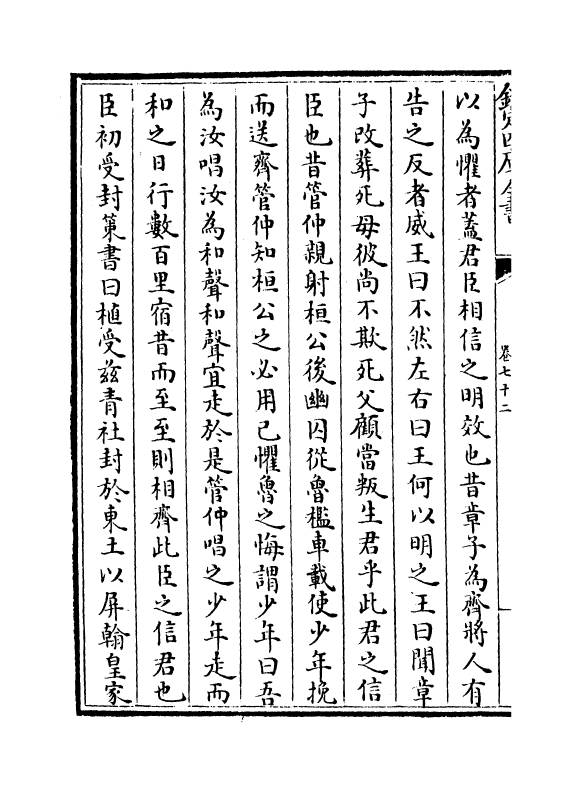 欽定四庫全書
卷七十二
以為懼者蓋君臣相信之明效也昔章子為齊將人有
告之反者威王曰不然左右曰王何以明之王曰聞章
子改葬死母彼尚不欺死父顧當叛生君乎此君之信
臣也昔管仲親射桓公後幽囚從魯檻車載使少年挽
而送齊管仲知桓公之必用已懼魯之悔謂少年曰吾
為汝唱汝為和聲和聲宜走於是管仲唱之少年走而
和之日行數百里宿昔而至至則相齊此臣之信君也
臣初受封策書曰植受茲青社封於東土以屏翰皇家